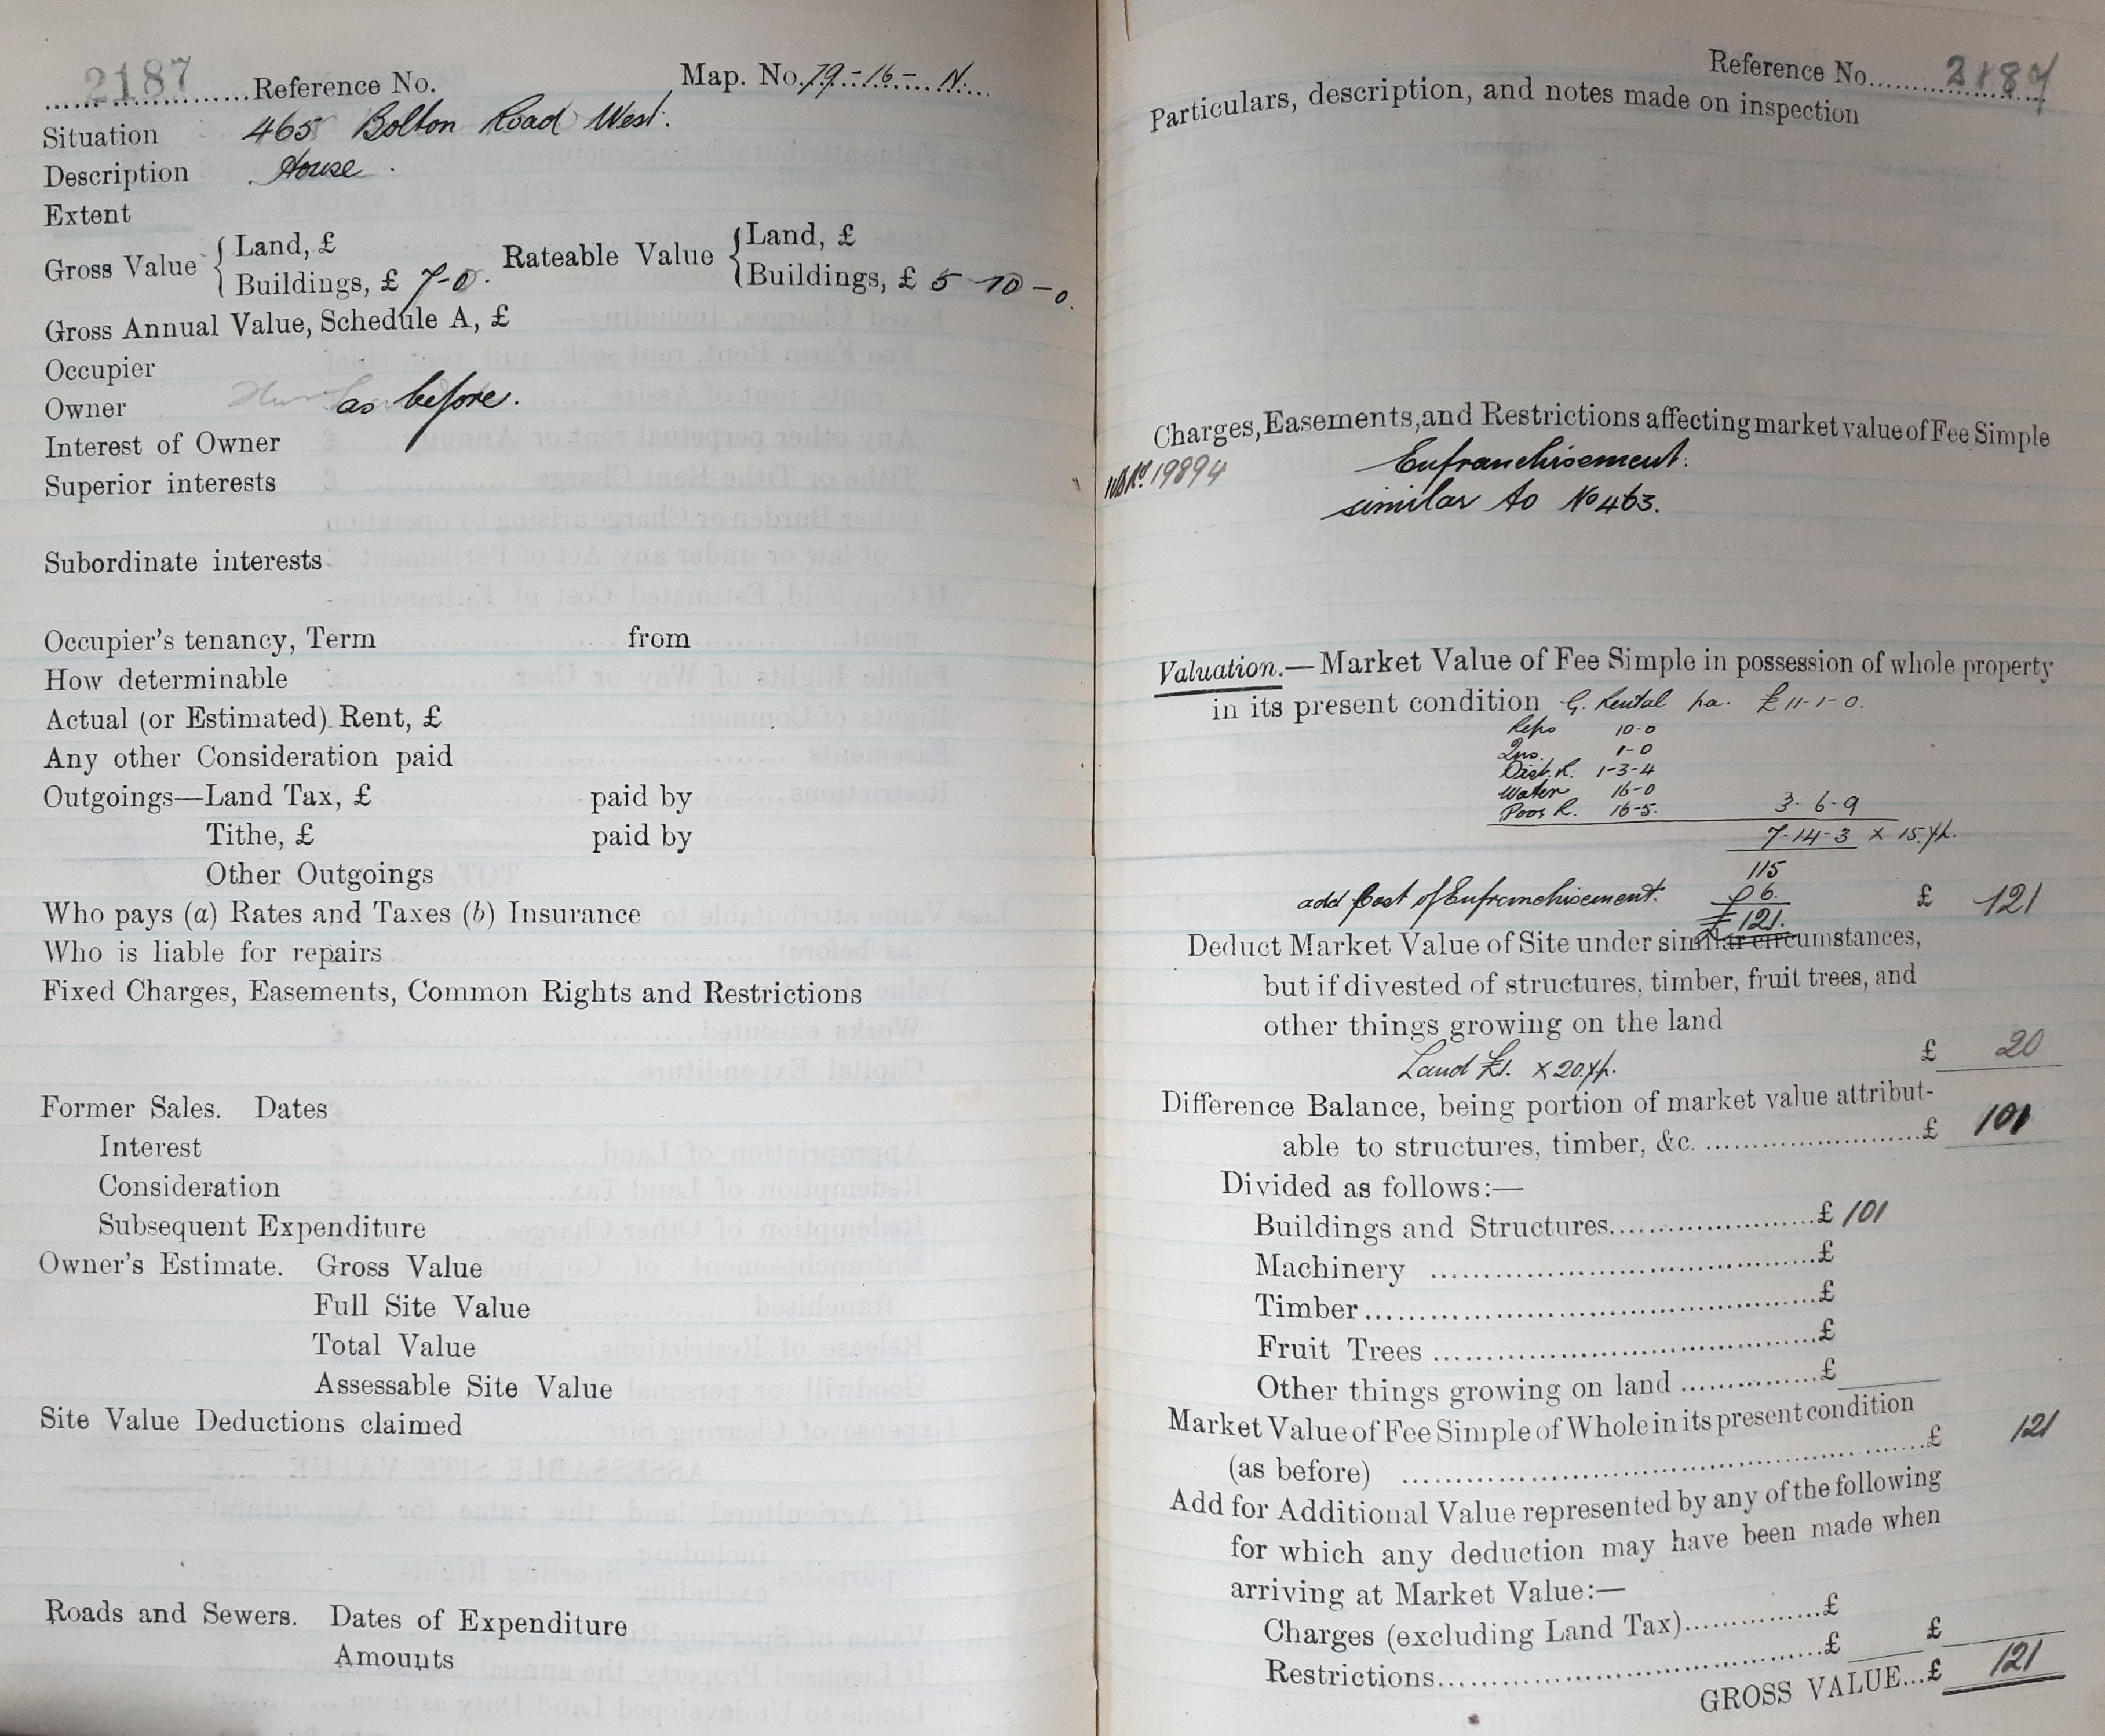 2187 Reference No. Map. No. 79-16- N.
Situation 465 Bolton Road West.
Description House.
Extent
Gross Value { Land, £
Buildings, £ 7-0. Rateable Value { Land, £
Buildings, £ 5-10-0.
Gross Annual Value, Schedule A, £
Occupier
Owner as before.
Interest of Owner
Superior interests
Subordinate interests
Occupier's tenancy, Term from
How determinable
Actual (or Estimated) Rent, £
Any other Consideration paid
Outgoings—Land Tax, £ paid by
Tithe, £ paid by
Other Outgoings
Who pays (a) Rates and Taxes (b) Insurance
Who is liable for repairs
Fixed Charges, Easements, Common Rights and Restrictions
Former Sales. Dates
Interest
Consideration
Subsequent Expenditure
Owner's Estimate. Gross Value
Full Site Value
Total Value
Assessable Site Value
Site Value Deductions claimed
Roads and Sewers. Dates of Expenditure
Amounts
Reference No. 2187
Particulars, description, and notes made on inspection
Charges, Easements, and Restrictions affecting market value of Fee Simple
19894 Enfranchisement.
similar to No 463.
Valuation.—Market Value of Fee Simple in possession of whole property
in its present condition G. Rental pa. £11-1-0.
Reps 10-0
Ins. 1-0
Dist. R. 1-3-4
Water 16-0
Poor R. 16-5. 3-6-9
7-14-3 x 15 yp.
115
add Cost of Enfranchisement. 6. £ 121
£121.
Deduct Market Value of Site under similar circumstances,
but if divested of structures, timber, fruit trees, and
other things growing on the land
Land £1. x 20 yp. £ 20
Difference Balance, being portion of market value attribut-
able to structures, timber, &c. £ 101
Divided as follows:—
Buildings and Structures £ 101
Machinery £
Timber £
Fruit Trees £
Other things growing on land £
Market Value of Fee Simple of Whole in its present condition
(as before) £ 121
Add for Additional Value represented by any of the following
for which any deduction may have been made when
arriving at Market Value:—
Charges (excluding Land Tax) £
Restrictions £ £
GROSS VALUE...£ 121